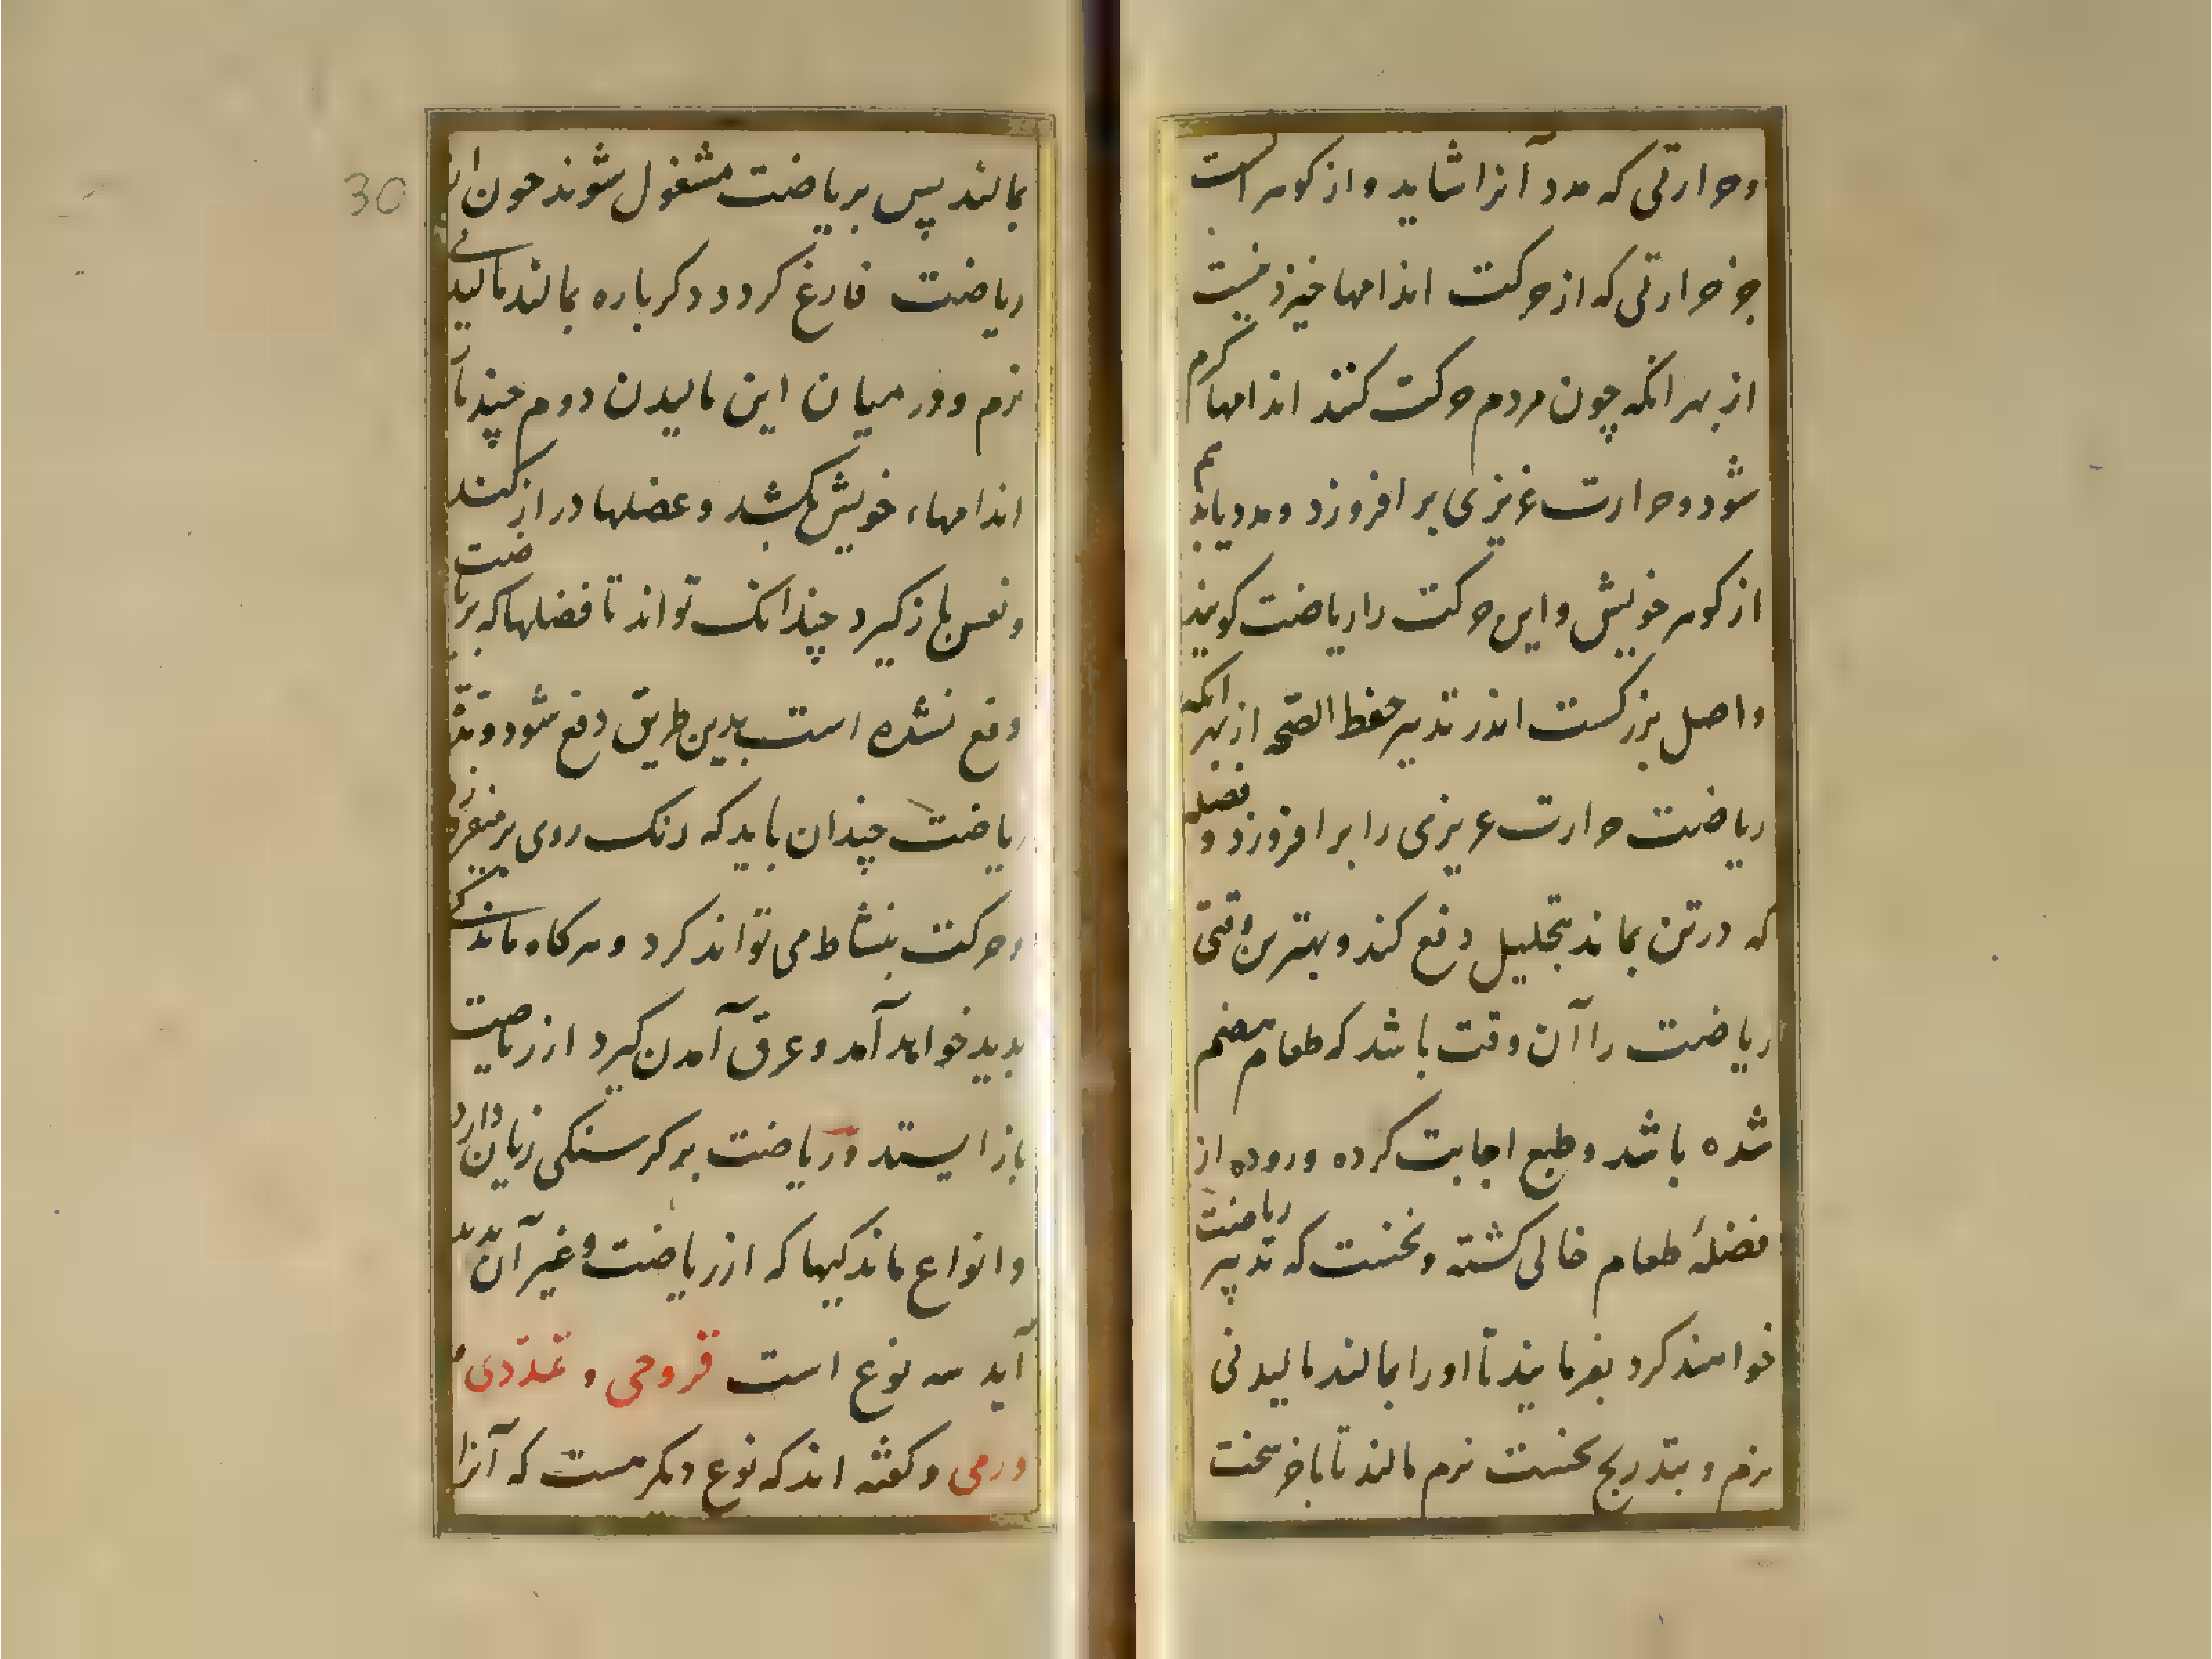 وحرارتی که مدد آنرا شاید و از کوهر است
جز حرارتی که از حرکت اندامها خیزد نیست
از بهر انکه چون مردم حرکت کنند اندامها کرم
شود و حرارت غریزی بر افروزد و مدد یابد هم
از کوهر خویش و این حرکت را ریاضت کویند
و اصل بزرکست اندر تدبیر حفظ الصحه از بهر انکه
ریاضت حرارت غریزی را بر افروزد و فضله
که در تن بماند بتحلیل دفع کند و بهترین وقتی
ریاضت را آن وقت باشد که طعام هضم
شده باشد و طبع اجابت کرده و روده از
فضلهٔ طعام خالی کشته و نخست که تدبیر ریاضت
خواهند کرد بفرمایند تا اورا بمالند مالیدنی
نرم و بتدریج نخست نرم مالند تا باخر سخت
بمالند پس بریاضت مشغول شوند چون از
ریاضت فارغ کردد دکرباره بمالند مالیدنی
نرم و در میان این مالیدن دوم چند بار
اندامهاء خویش بکشد و عضلها دراز کند
و نفس باز کیرد چندانک تواند تا فضلها که بریاضت
دفع نشده است بدین طریق دفع شود و
ریاضت چندان باید که رنک روی بر می‌فروزد
و حرکت بنشاط می تواند کرد و هرکاه ماندکی
بدید خواهد آمد و عرق آمدن کیرد از ریاضت
باز ایستد و ریاضت بر کرسنکی زیان دارد
و انواع ماندکیها که از ریاضت و غیر آن بدید
آید سه نوع است قروحی و تمددی و
ورمی و کفته اند که نوع دیکر هست که آنرا
30